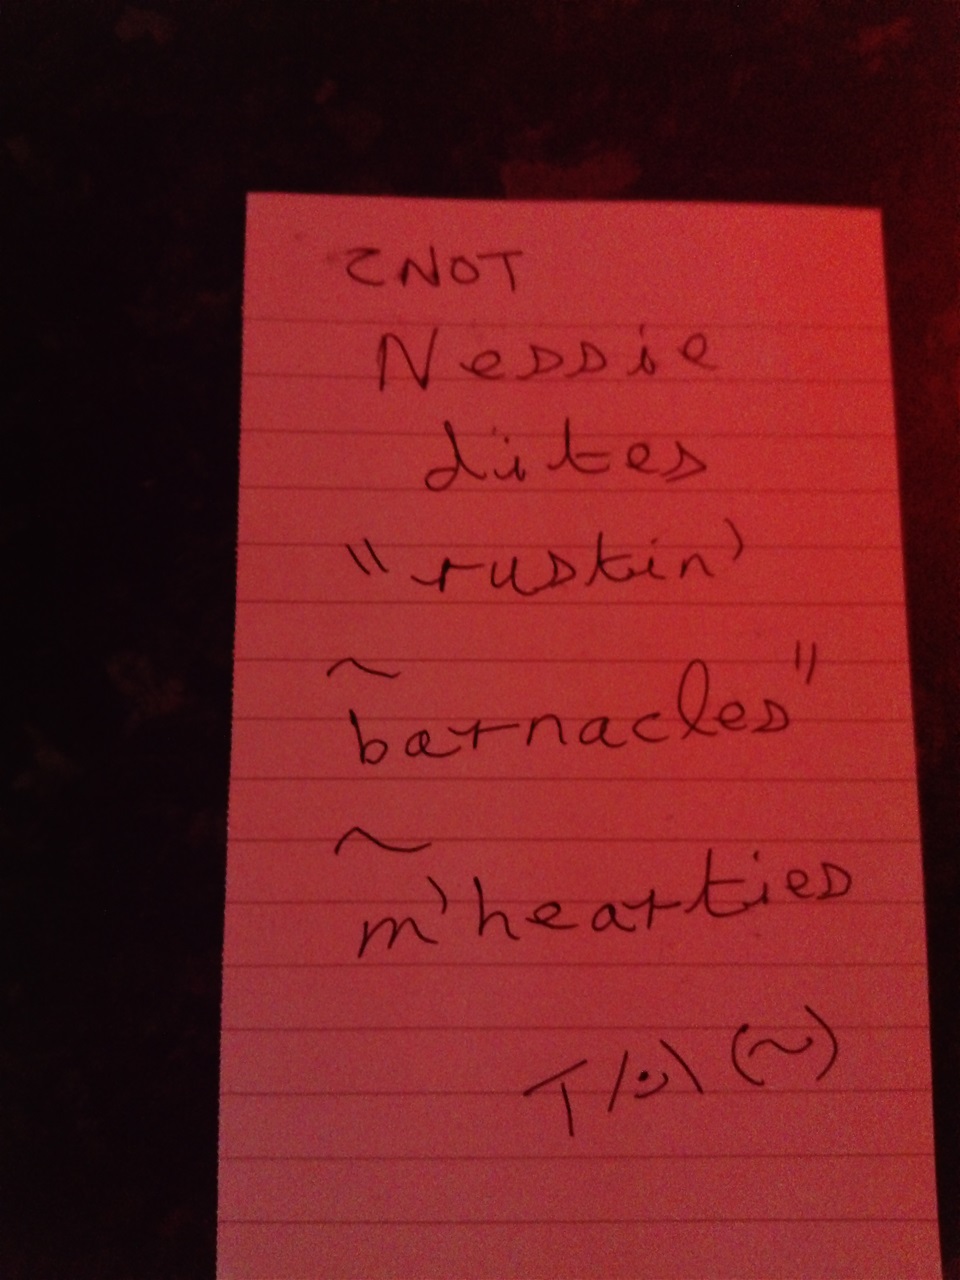 CNOT
Nessie
dites
"rustin'
~
barnacles"
~
m'hearties